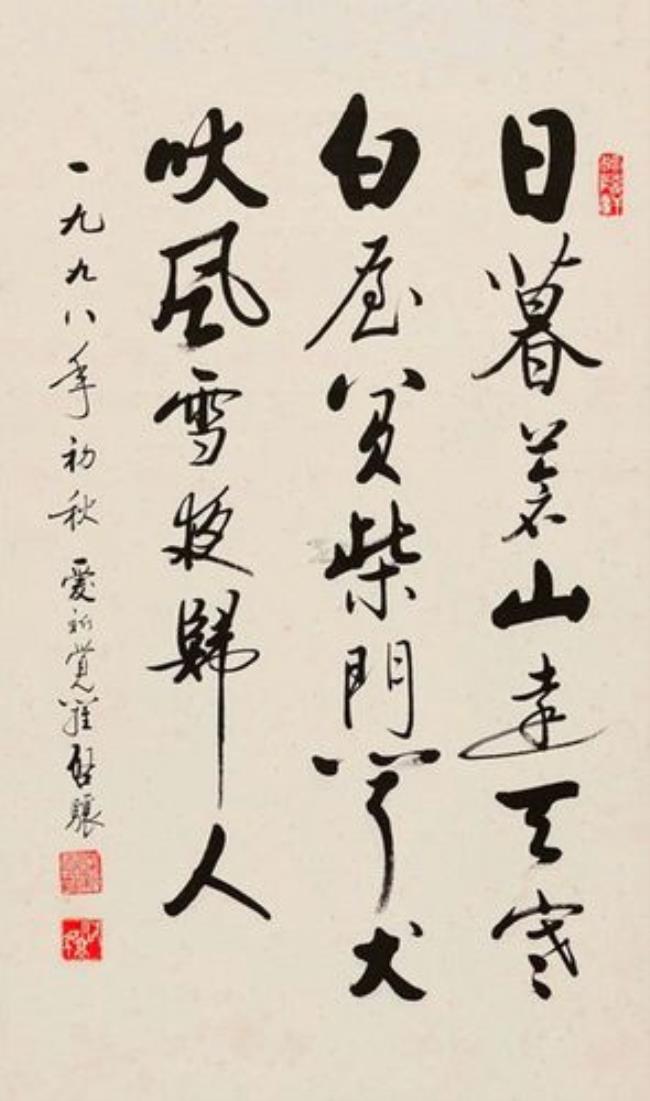 日暮蒼山遠天寒
白屋貧柴門聞犬
吠風雪夜歸人
一九九八年初秋 愛新覺羅啟驤